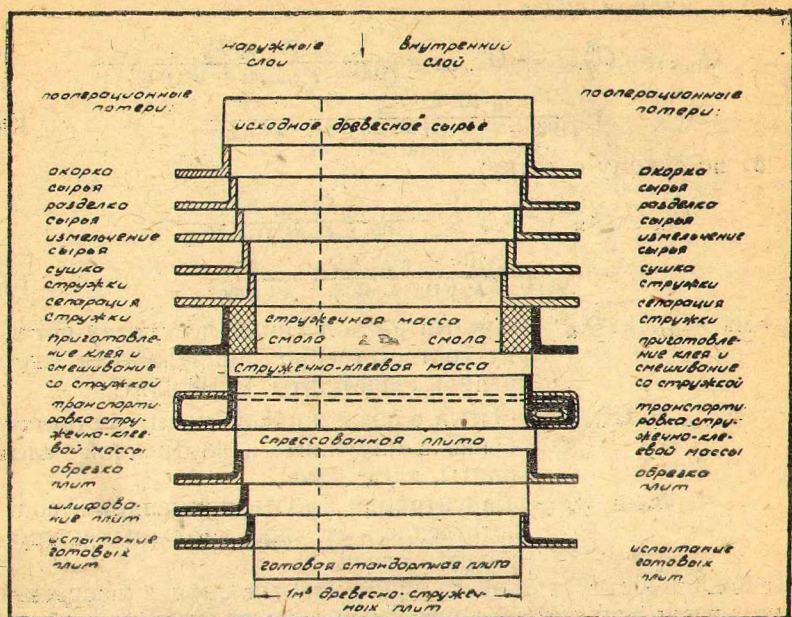 наружные
слои
внутренний
слой
пооперационные
потери:
пооперационные
потери:
исходное древесное сырье
окорка
сырья
разделка
сырья
измельчение
сырья
сушка
стружки
сепарация
стружки
приготовле-
ние клея и
смешивание
со стружкой
транспорти-
ровка стру-
жечно-кле-
евой массы
обрезка
плит
шлифова-
ние плит
испытание
готовых
плит
стружечная масса
смола
смола
стружечно-клеевая масса
спрессованная плита
готовая стандартная плита
1м³ древесно-стружеч-
ных плит
окорка
сырья
разделка
сырья
измельчение
сырья
сушка
стружки
сепарация
стружки
приготовле-
ние клея и
смешивание
со стружкой
транспорти-
ровка стру-
жечно-кле-
евой массы
обрезка
плит
испытание
готовых
плит